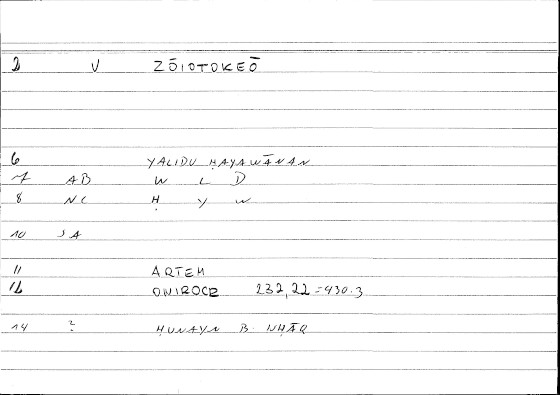 2 V ZŌIOTOKEŌ
6 YALIDU ḤAYAWĀNAN
7 AB W L D
8 NC Ḥ Y W
10 SA
11 ARTEM
12 ONIROCR 232,22 = 430.3
14 ? ḤUNAYN B. ISḤĀQ